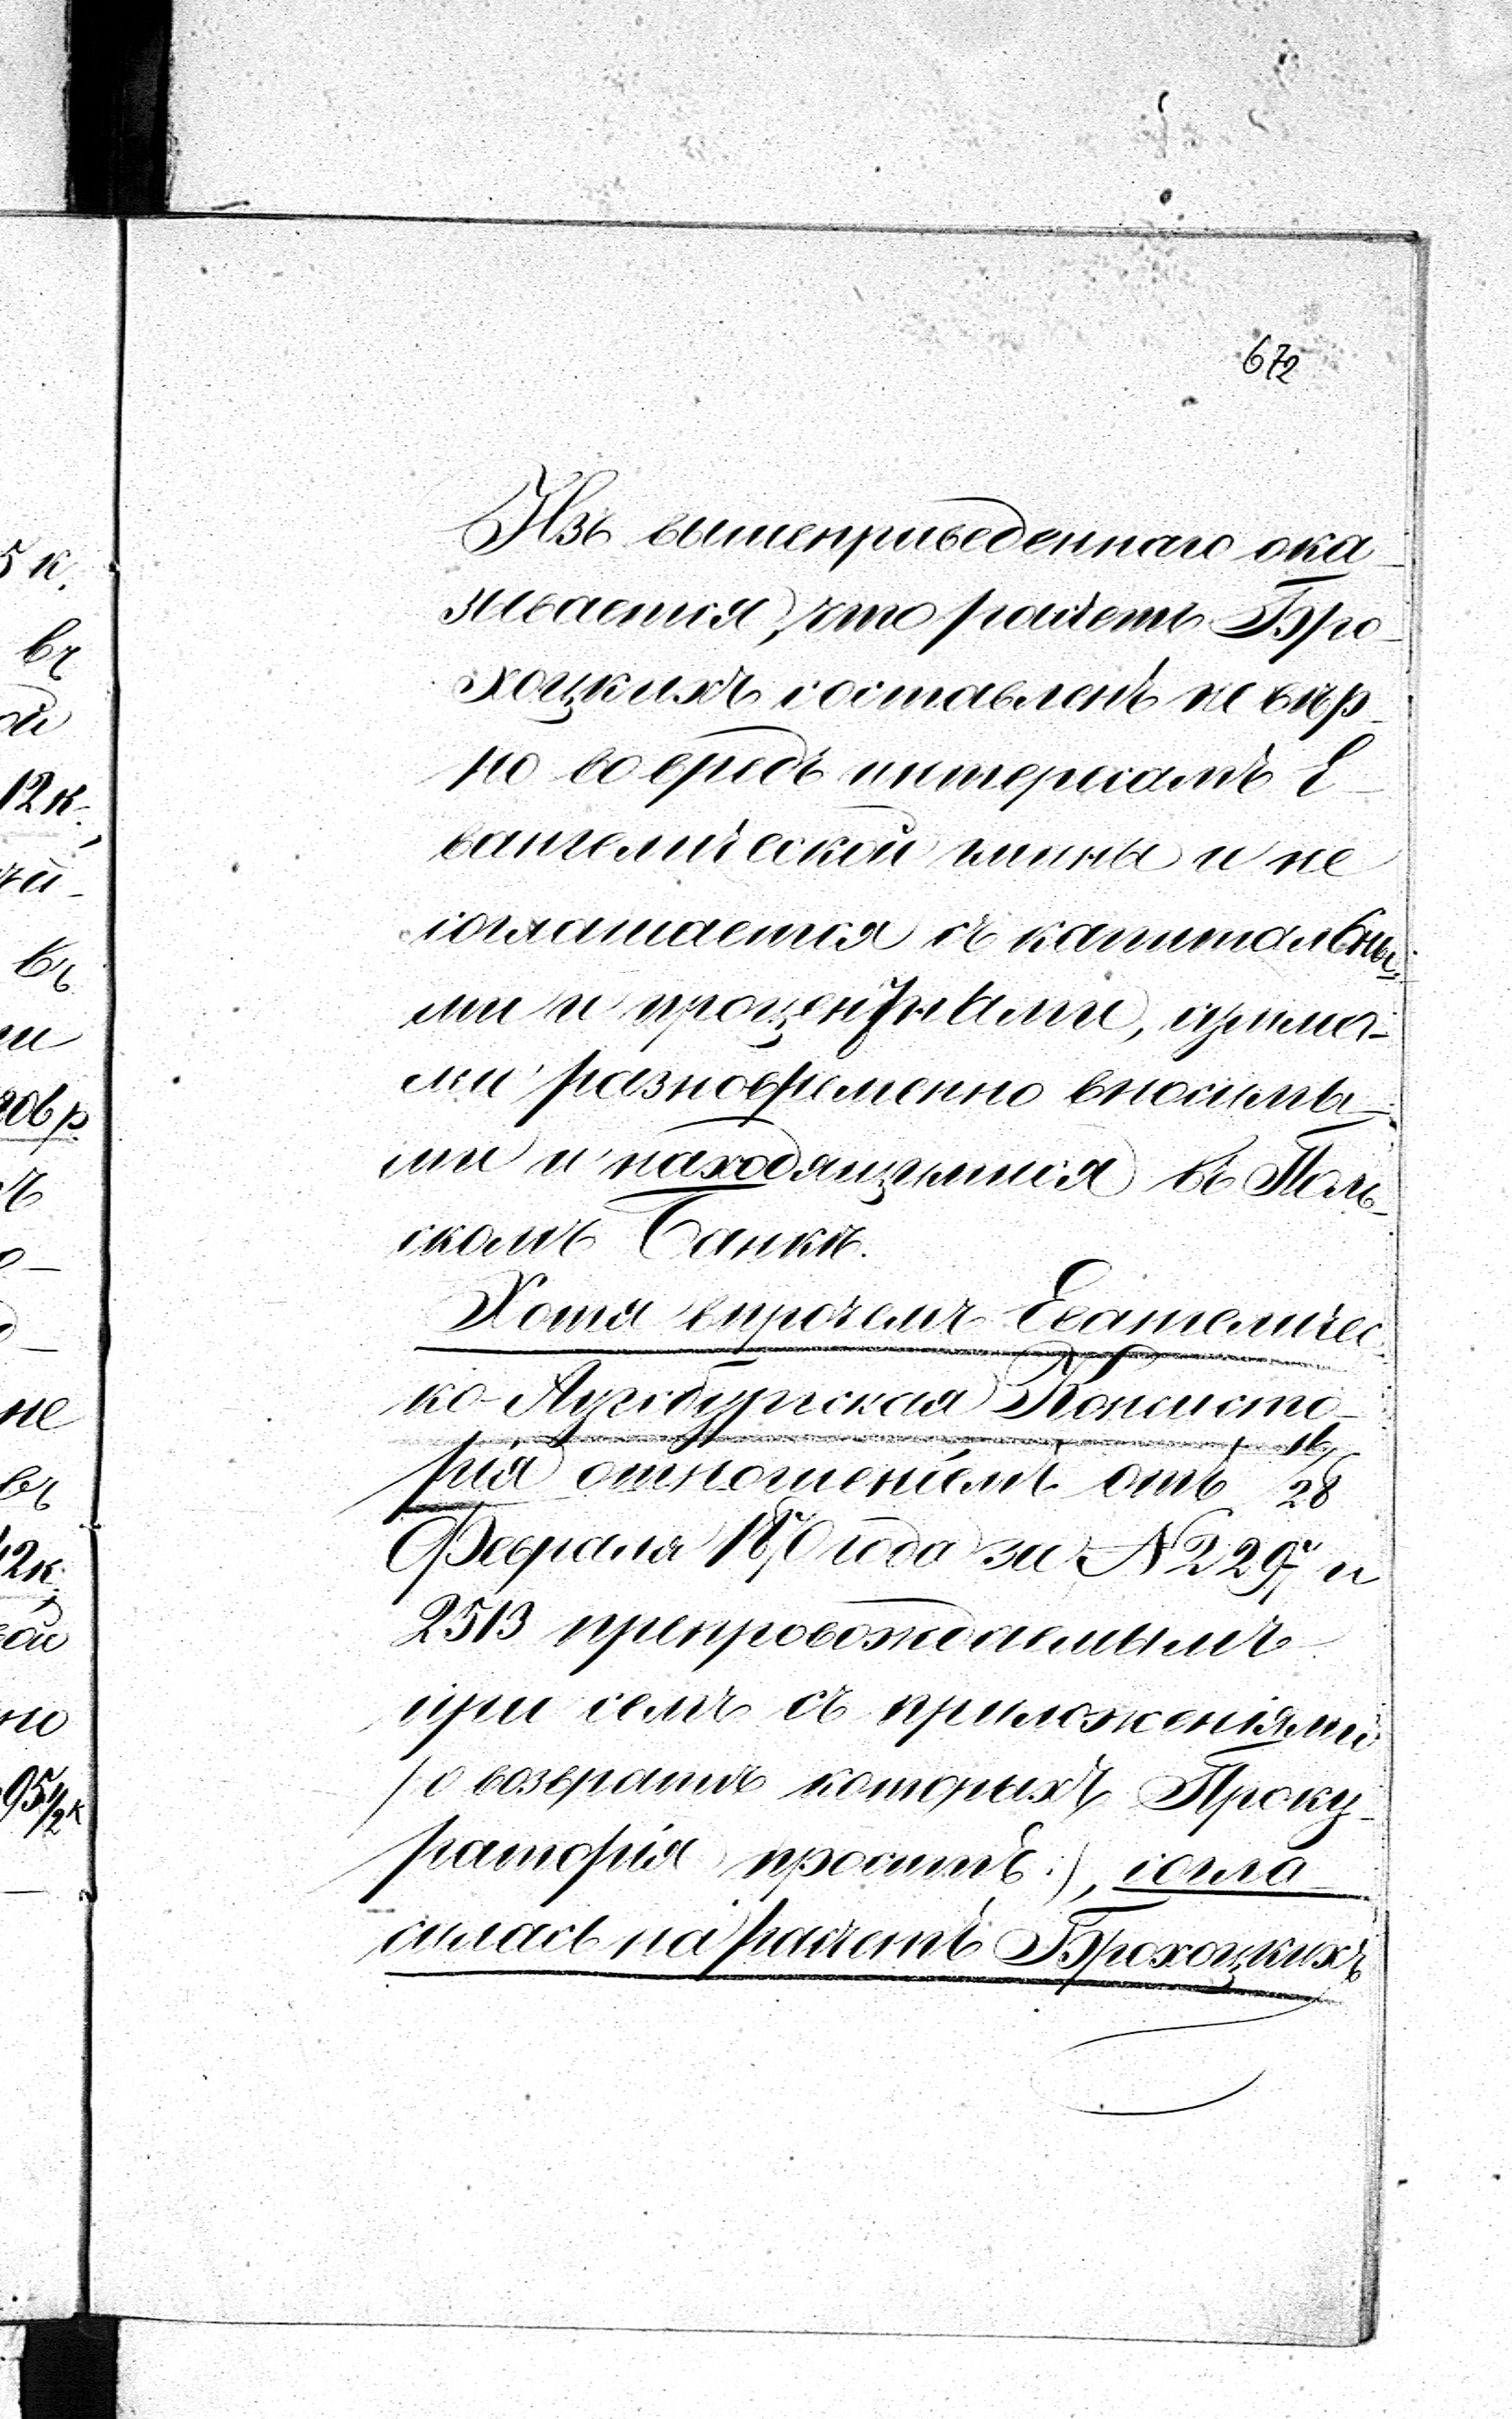 672
5 к.
въ
ой
12 к.,
въ
206 р.
не
въ
42 к.
но
95 1/2 к
Изъ вышеприведеннаго ока-
зывается, что расчетъ Бро-
хоцкихъ составленъ не вѣр-
но во вредъ интересамъ Е-
вангелической гмины и не
соглашается съ капитальны-
ми и процентными, сумма-
ми разновременно вносимы-
ми и находящимися въ Поль-
скомъ Банкѣ.
Хотя впрочемъ Евангеличес-
ко-Аугсбургская Консисто-
рія отношеніемъ отъ 16/28
Февраля 1870 года за № 2297 и
2513 препровождаемымъ
при семъ съ приложеніями
/:о возвратѣ которыхъ Проку-
раторія проситъ:/, согла-
силась на расчетъ Брохоцкихъ